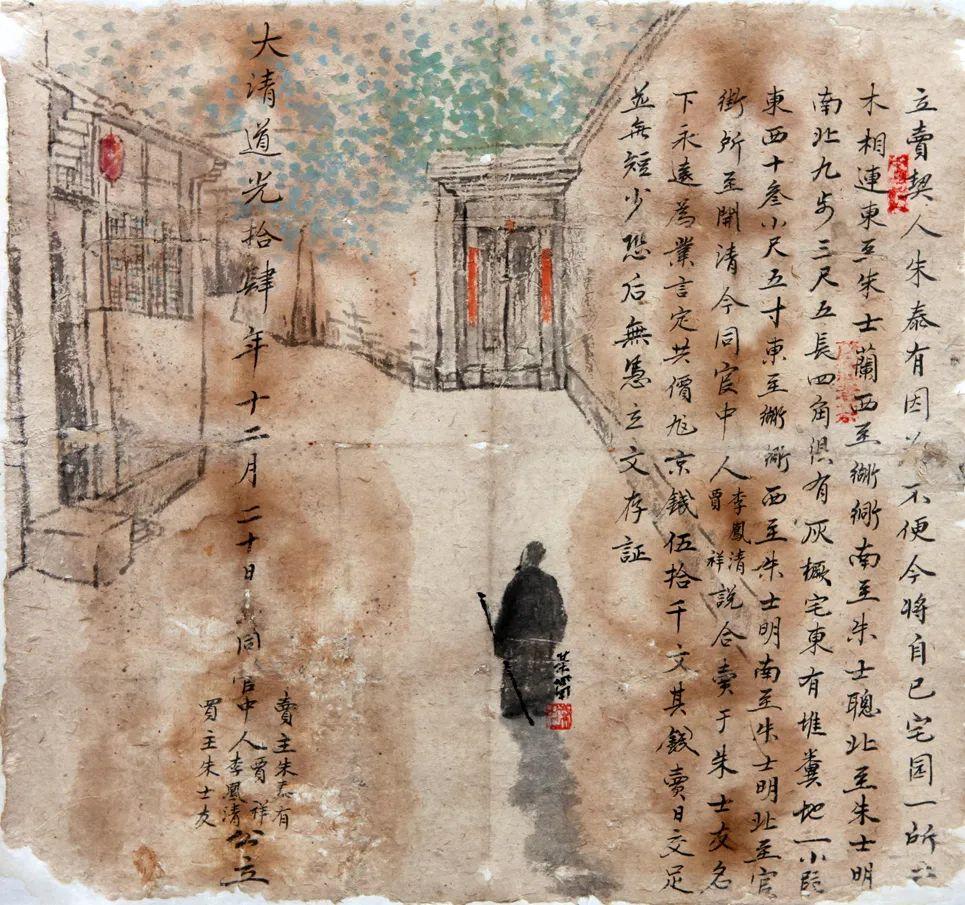 立賣契人朱泰有因為不便今将自己宅园一所
木相連東至朱士蘭西至衚衕南至朱士聰北至朱士明
南北九步三尺五長四角俱有灰橛宅東有堆糞地一小段
東西十叁小尺五寸東至衚衕西至朱士明南至朱士明北至官
街所至開清今同官中人李鳳清賈祥説合賣于朱士友名
下永遠為業言定共價九京錢伍拾千文其錢賣日交足
並無短少恐后無憑立文存証
大清道光拾肆年十二月二十日同官中人李鳳清賈祥公立
賣主朱泰有
買主朱士友